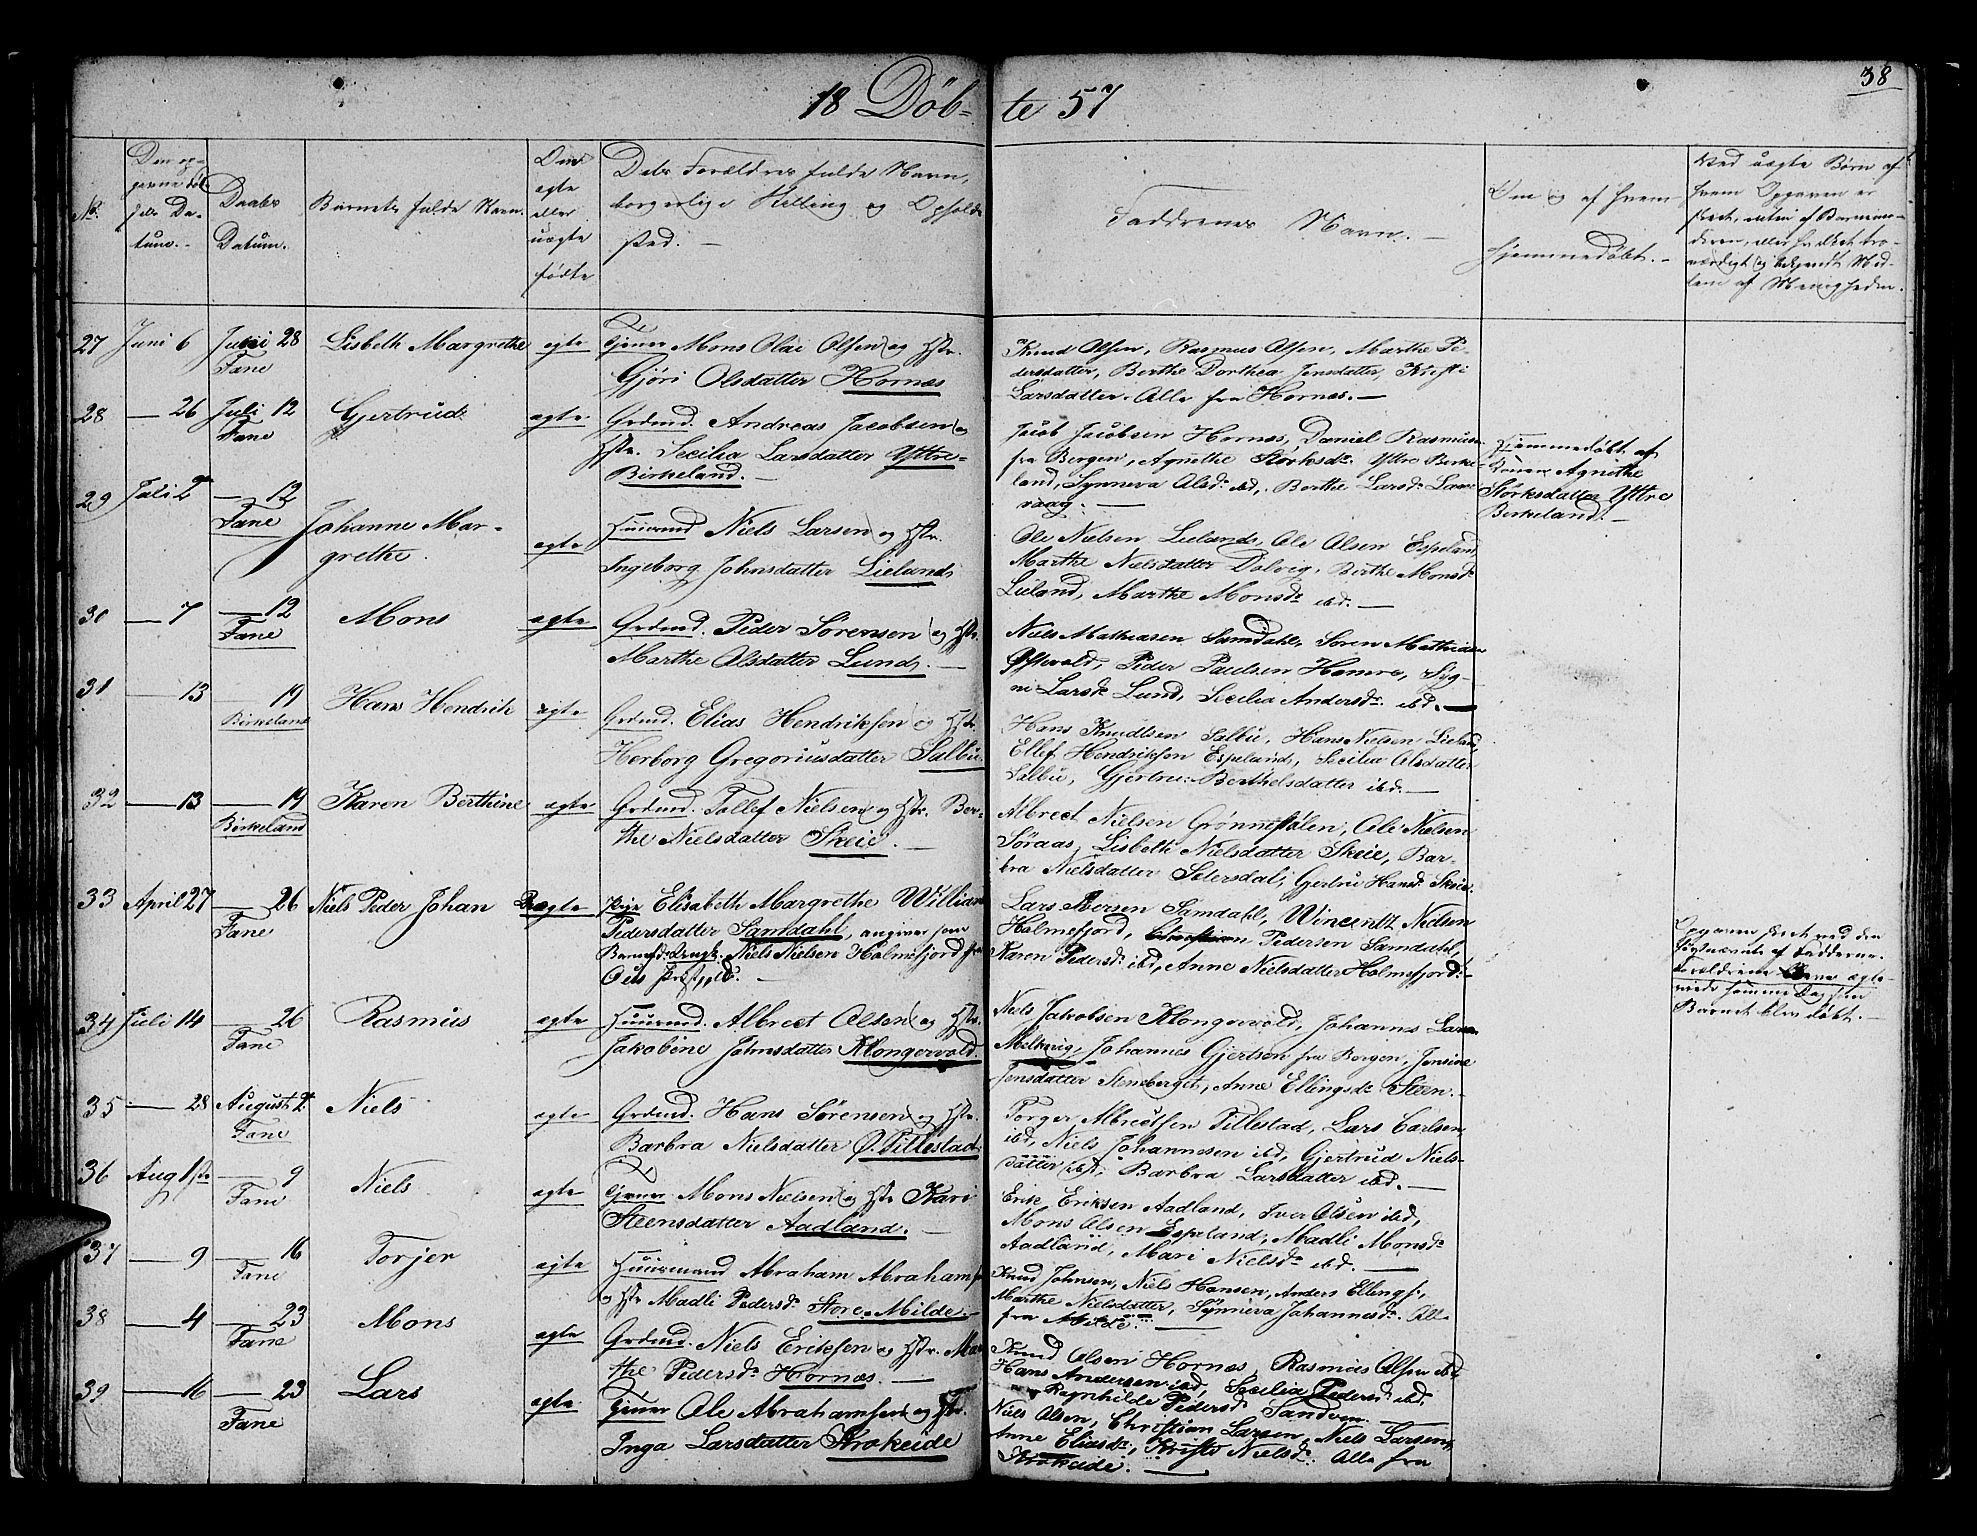 38
18 Döb-te 57
No.
Den op-
givne Föd-
sels Da-
tum.-
Daabs
Datum.
Barnets fulde Navn.
Om
ægte
eller
uægte
fødte
Dets Forældres fulde Navn,
borgerlige Stilling og Opholds
sted. -
Faddrenes Navn. -
Om og af hvem
hjemmedöbt. -
Ved uægte Børn af
hvem Opgaven er
skeet, enten af Barnemo-
deren, eller hvilket tro-
værdigt og bekjendt Med-
lem af Menigheden.
27 Juni 6 Juni 28 Lisbeth Margrethe ægte Tjener Mons Olai Olsen og Hstr.
Fane
Gjöri Olsdatter Hornæs
Knud Olsen, Rasmus Olsen, Marthe Pe-
dersdatter, Berthe Dorthea Jensdatter, Kristi
Larsdatter. Alle fra Hornæs. -
28 - 26 Juli 12 Gjertrud ægte Grdmd. Andreas Jacobsen og
Fane
Hstr. Secilia Larsdatter Yttre-
Birkeland. -
Jacob Jacobsen Hornæs, Daniel Rasmusen
fra Bergen, Agnethe Störksd. Yttre Birke-
land, Synneva Olsd. ibd, Berthe Larsd.
vaag. -
Hjemmedöbt af
Konen Agnethe
Störksdatter Yttre
Birkeland. -
29 Juli 2 - 12 Johanne Mar-
Fane
grethe. ægte Huusmd Niels Larsen og Hstr.
Ingeborg Johnsdatter Lieland
Ole Nielsen Lieland, Ole Olsen Espeland
Marthe Nielsdatter Dalvig, Berthe Monsd.
Lieland, Marthe Monsd. ibd. -
30 - 7 - 12 Mons ægte Grdmd. Peder Sörensen og Hstr.
Fane
Marthe Olsdatter Lund. -
Niels Mathiasen Samdahl, Sören Mathiasen
Peder Paulsen Hamre, Syg-
ni Larsd. Lund, Secilia Andersd. ibd. -
31 - 13 - 19 Hans Hendrik ægte Grdmd. Elias Hendriksen og Hstr.
Birkeland
Herborg Gregoriusdatter Salbu.
Hans Knudtsen Salbu, Hans Nielsen Lieland
Ellef Hendriksen Espeland, Secilia Olsdatter
Salbu, Gjertru Berthelsdatter ibd. -
32 - 13 - 19 Karen Berthine ægte Grdmd. Tollef Nielsen og Hstr. Ber-
Birkeland
the Nielsdatter Skeie. -
Albrect Nielsen Grönnestölen, Ole Nielsen
Söraas, Lisbeth Nielsdatter Skeie, Bar-
bra Nielsdatter Sætersdal, Gjertru Hansd. Skeie
33 April 27 - 26 Niels Peder Johan uægte Pige Elisabeth Margrethe William
Fane
Pedersdatter Samdahl, angiver som
Barnefader Ungk. Niels Nielsen Holmefjord fra
Ous Præstgjeld. -
Lars Iversen Samdahl, Wincentz Nielsen
Holmefjord, Christian Pedersen Samdahl,
Karen Pedersd. ibd, Anne Nielsdatter Holmefjord. -
Opgaven skeet ved den
af Faddrene.
Forældrene bleve ægte-
viede samme Dag som
Barnet blev döbt. -
34 Juli 14 - 26 Rasmus ægte Huusmd. Albrect Olsen og Hstr.
Fane
Jakobine Johnsdatter Klongervold.
Niels Jakobsen Klongervold, Johannes Larsen
Melkevig, Johannes Gjertsen fra Bergen, Jensine
Jensdatter Stenberget, Anne Ellingsd. Steen. -
35 - 28 August 2 Niels ægte Grdmd. Hans Sörensen og Hstr.
Fane
Barbra Nielsdatter Ö. Titlestad.
Torger Albrectsen Titlestad, Lars Carlsen,
ibd, Niels Johannesen ibd, Gjertrud Niels-
datter ibd, Barbra Larsdatter ibd. -
36 Aug 1ste - 9 Niels ægte Tjener Mons Nielsen og Hstr Kari
Fane
Steensdatter Aadland. -
Erik Eriksen Aadland, Iver Olsen ibd,
Mons Olsen Espeland, Madli Monsd.
Aadland, Mari Nielsd. ibd. -
37 - 9 - 16 Torjer ægte Huusmand Abraham Abrahams
Fane
og Hstr Madli Pedersd. Store-Milde. -
Knud Johnsen, Niels Hansen, Anders Ellings.,
Marthe Nielsdatter, Synneva Johannesd. Alle
fra Milde. -
38 - 4 - 23 Mons ægte Grdmd. Niels Eriksen og Hstr. Mar
Fane
the Pedersd. Hornæs. -
Knud Olsen Hornæs, Rasmus Olsen ibd
Hans Andersen ibd, Secilia Pedersd. ibd.
Ragnhilde Pedersd. Sandven. -
39 - 16 - 23 Lars ægte Tjener Ole Abrahamsen og Hstr.
Fane
Inga Larsdatter Krokeide
Niels Olsen, Christian Larsen, Niels Larsen,
Anne Eliasd., Kristi Nielsd. Alle fra
Krokeide. -